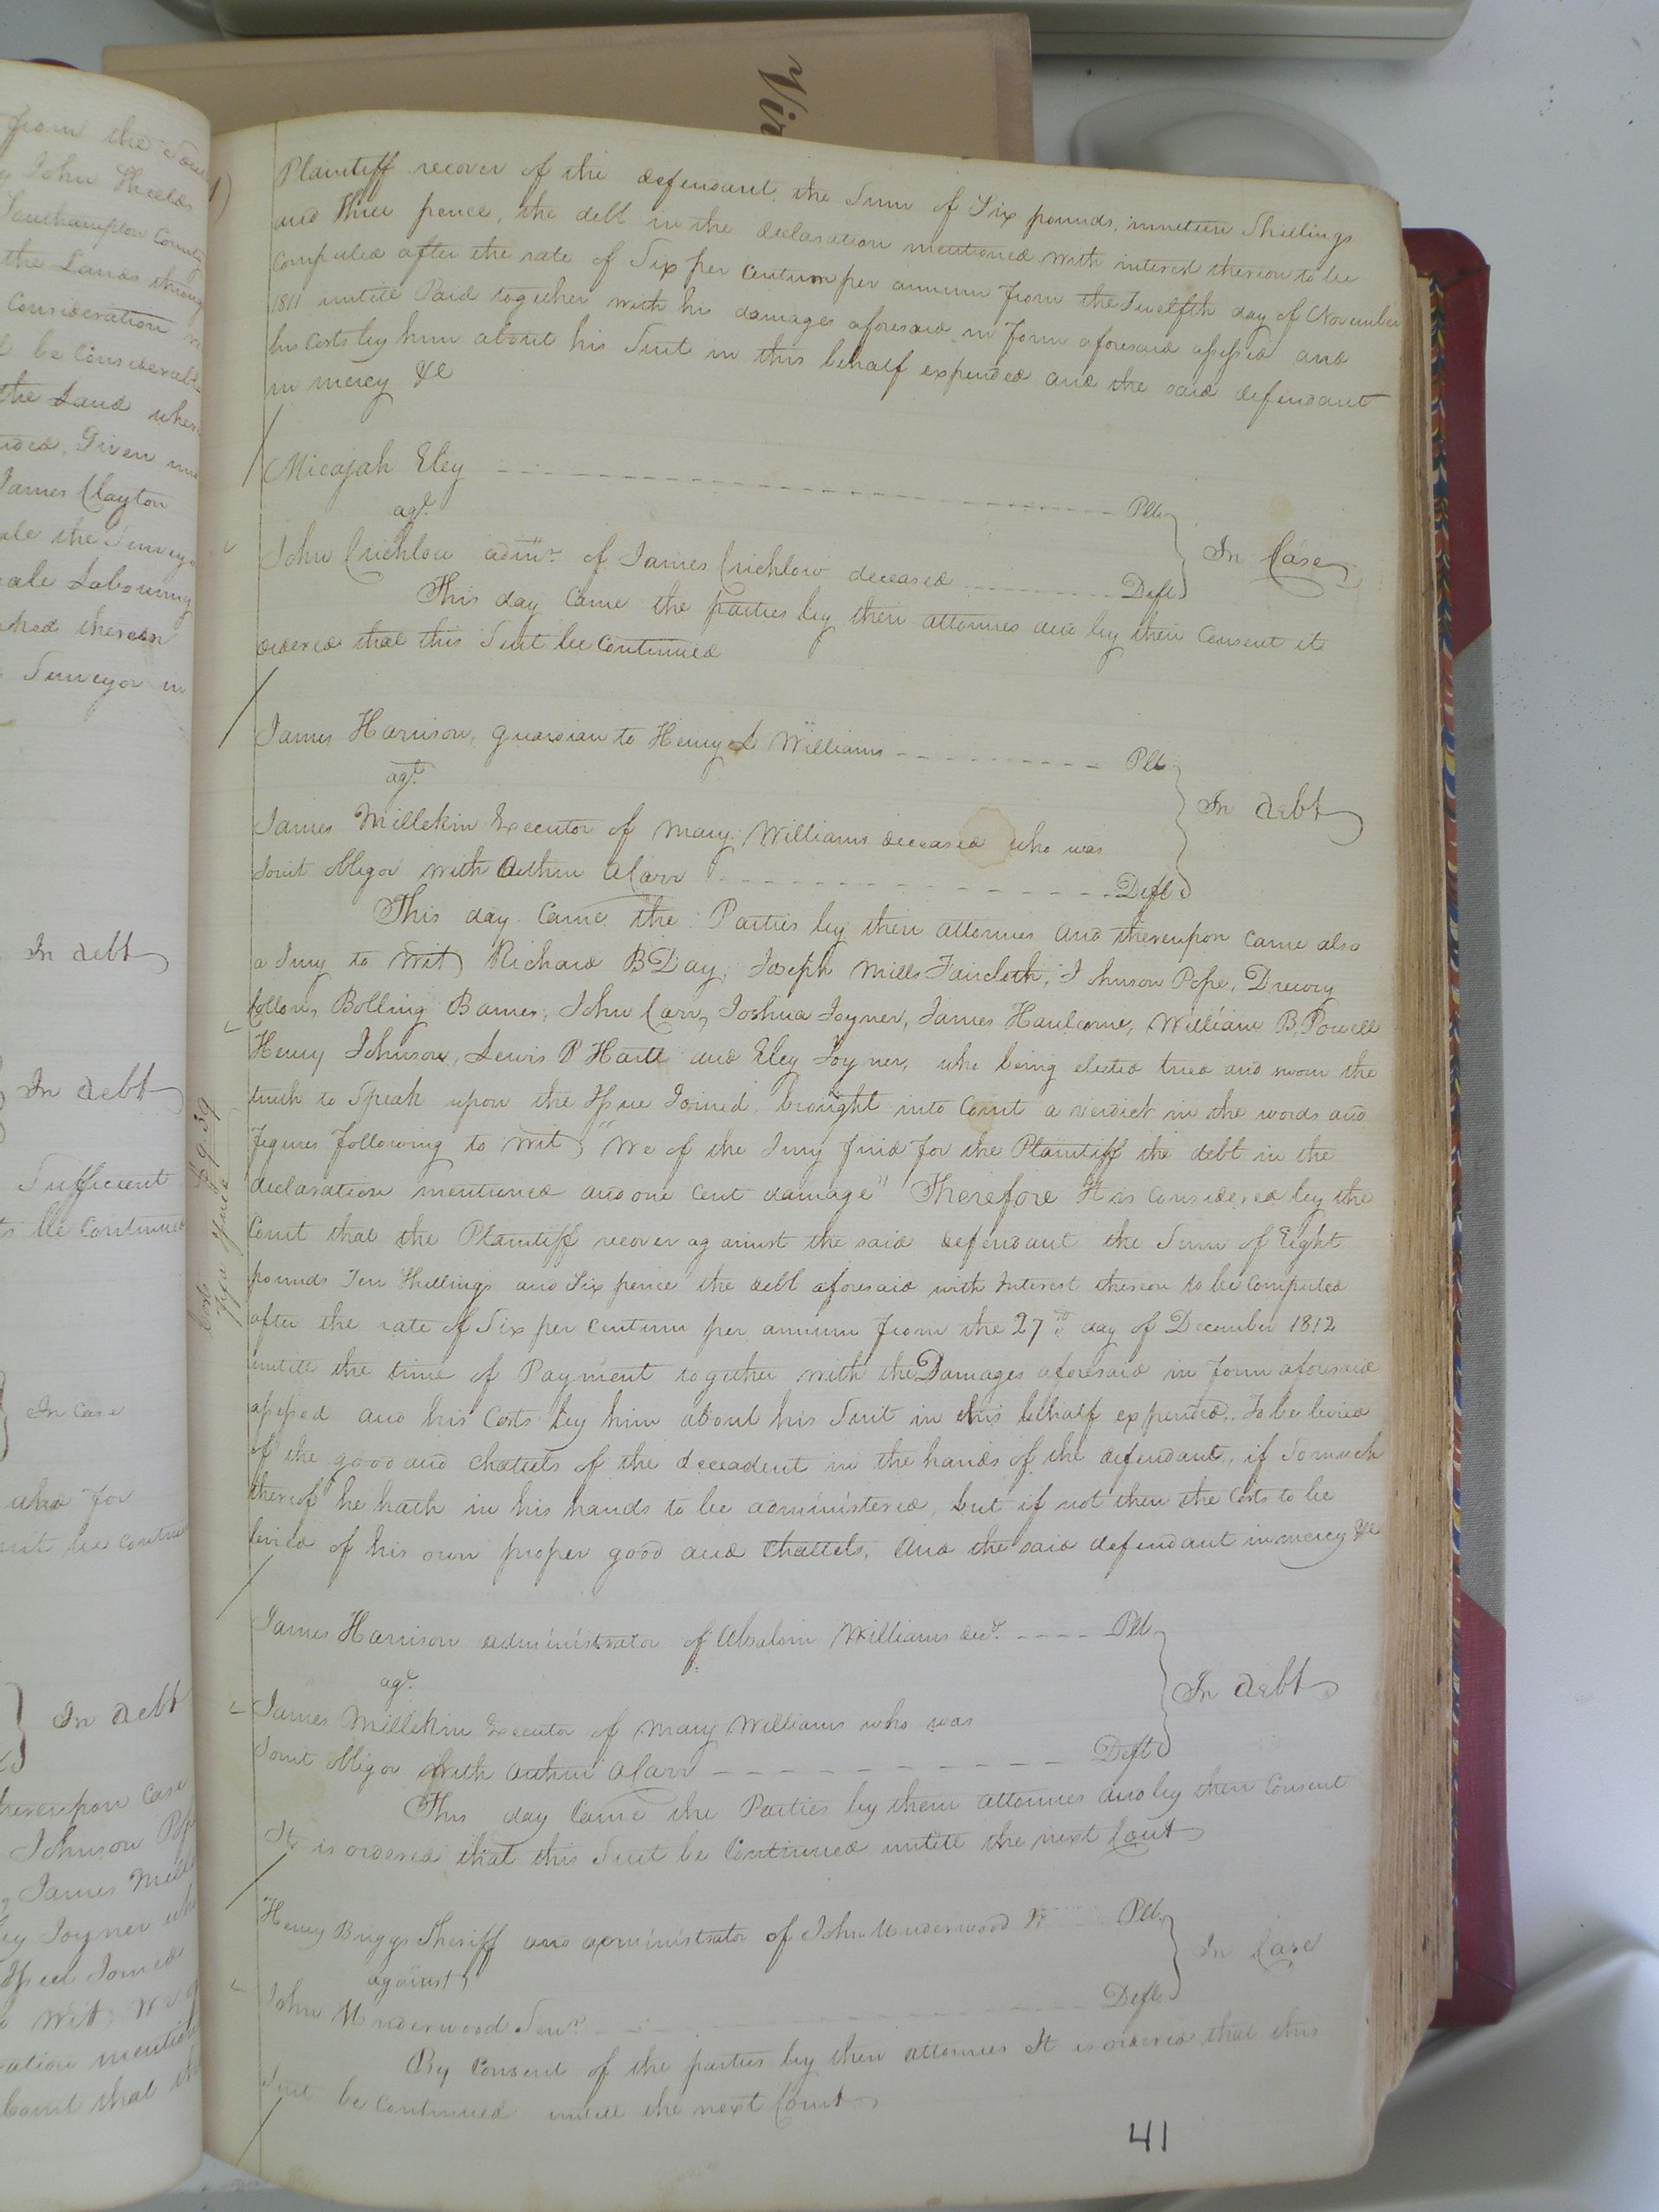 Vir
from the
John Shields
Southampton County
the Lands
Consideration
be Considerable
the Land where
Given
James Clayton
the Surveyor
Labouring
thereon
Surveyor in
In debt
In debt
Sufficient
be Continued
In Case
for
In debt
thereupon
Johnson
James
Joyner
Issue Joined
Wit, We of
Court that the
1)
Plaintiff recover of the defendant, the Sum of Six pounds, nineteen Shillings
and three pence, the debt in the declaration mentioned with interest thereon to be
Computed after the rate of Six per Centum per annum from the Twelfth day of November
1811 untill Paid together with his damages aforesaid in form aforesaid assessed and
his Costs by him about his Suit in this behalf expended and the said defendant
in mercy &c
Micajah Eley Plt.
agt.
John Crichlow admr. of James Crichlow deceased Deft
In Case
This day Came the parties by their attornies and by their Consent it
ordered that this Suit be Continued
James Harrison, guardian to Henry L Williams Plt
agt.
In debt
James Millekin Executor of Mary Williams deceased who was
Joint Obligor with Arthur A Carr Deft
This day Came the Parties by their attornies and thereupon Came also
a Jury to Wit, Richard B Day, Joseph Mills Faircloth, Johnson Pope, Drewry
Bolling Barnes, John Carr, Joshua Joyner, James William B, Powell
Henry Johnson, Lewis P and Eley Joyner, who being elected tried and sworn the
truth to Speak upon the Issue Joined, brought into Court a verdict in the words and
figures following to Wit, "We of the Jury find for the Plaintiff the debt in the
declaration mentioned and one Cent damage" Therefore It is Considered by the
Court that the Plaintiff recover against the said defendant the Sum of Eight
pounds Ten Shillings and Six pence the debt aforesaid with Interest thereon to be Computed
after the rate of Six per Centum per annum from the 27th day of December 1812
untill the time of Payment together with the Damages aforesaid in form aforesaid
assessed and his Costs by him about his Suit in this behalf expended, To be levied
of the good and Chattels of the deceadent in the hands of the defendant, if So much
thereof he hath in his hands to be administered, but if not then the Costs to be
levied of his own proper good and Chattels, And the said defendant in mercy &c
Costs $9.39
James Harrison administrator of Absalom Williams decd. Plt
agt.
In debt
James Millekin Executor of Mary Williams who was
Joint Obligor With Arthur A Carr Deft
This day Came the Parties by their attornies and by their Consent
It is ordered that this Suit be Continued untill the next Court
Henry Briggs Sheriff and administrator of John Underwood Jr Plt.
against
In Case
John Underwood Senr. Deft.
By Consent of the parties by their attornies It is ordered that this
Suit be Continued untill the next Court
41